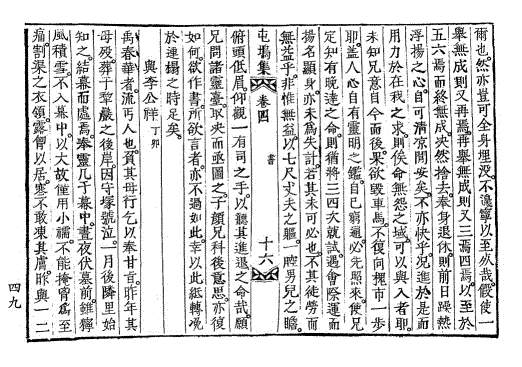 爾也。然亦豈可全身埋沒。不識寧以至於哉。假使一
擧無成則又再焉。再擧無成則又三焉四焉。以至於
五六焉而終無成。夬然捨去。奉身退休。則前日躁熱
浮揚之心。自可淸凉閒安矣。不亦快乎。况進於是而
用力於在我之求。則俟命無怨之域。可以與入者耶。
未知兄意自今而後。果欲毁車馬。不復向槐市一步
耶。蓋人心自有靈明之鑑。自己窮通。必先照來。使兄
定知有晩達之命。則猶將三四次就試。遇會際運而
揚名顯身。亦未爲失計。若其未可必也。不其徒勞而
無益乎。非惟無益。以七尺丈夫之軀。一腔男兒之膽。
屯塢集 卷四 書 十六
俯頭低眉。仰觀一有司之手。以聽其進退之命哉。願
兄問諸靈臺。取夬而亟圖之。子顔兄科後意思。亦復
如何。欲作書。所欲言者。亦不過如此。幸以此紙轉凂
於連榻之時足矣。
與李公祥 丁卯
禹春華者流丐人也。質其母行乞以奉甘旨。昨年其
母歿。葬于犂巖之後岸。因守塚號泣。一月後隣里始
知之。結幕而處焉。奉靈几于幕中。晝夜伏墓前。雖獰
風積雪。不入幕中。以大故僅用小襦。不能掩脅爲至
痛。割渠之衣領。露脅以居。寒不敢凍其膚。昨與一二
四九